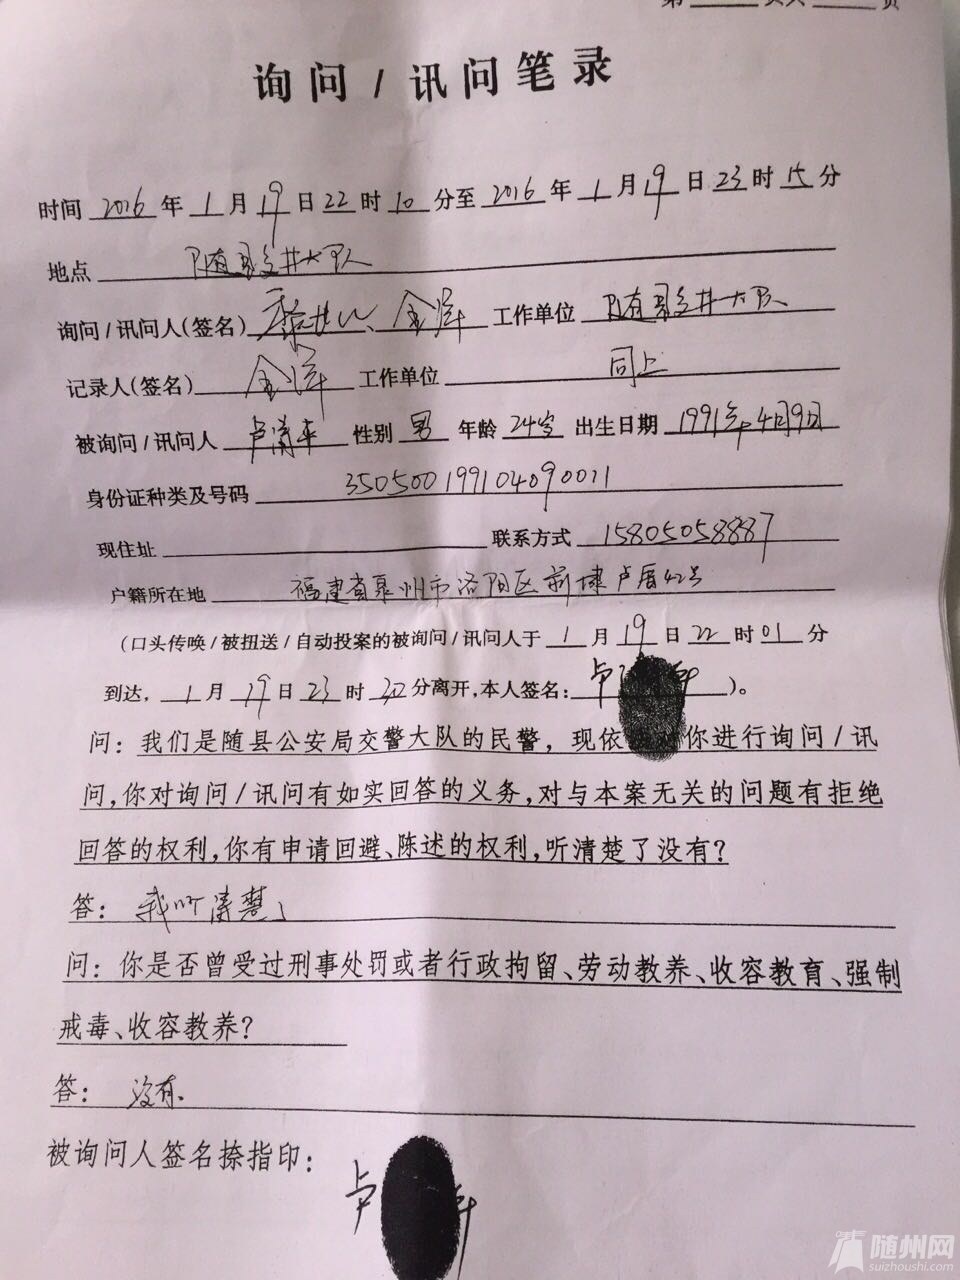 第 页共 页
询问/讯问笔录
时间 2016 年 1 月 19 日 22 时 10 分至 2016 年 1 月 19 日 23 时 15 分
地点 随县交井大队
询问/讯问人(签名) 金洋 工作单位 随县交井大队
记录人(签名) 金洋 工作单位 同上
被询问/讯问人 卢 性别 男 年龄 24岁 出生日期 1991年4月9日
身份证种类及号码 350500199104090011
现住址 联系方式 15805058887
户籍所在地 福建省泉州市洛阳区 卢厝42号
(口头传唤/被扭送/自动投案的被询问/讯问人于 1 月 19 日 22 时 01 分
到达, 1 月 19 日 23 时 20 分离开,本人签名: 卢 )。
问: 我们是随县公安局交警大队的民警, 现依 你进行询问/讯
问,你对询问/讯问有如实回答的义务,对与本案无关的问题有拒绝
回答的权利,你有申请回避、陈述的权利,听清楚了没有?
答: 我听清楚了
问: 你是否曾受过刑事处罚或者行政拘留、劳动教养、收容教育、强制
戒毒、收容教养?
答: 没有.
被询问人签名捺指印:
卢
随州网
suizhoushi.com